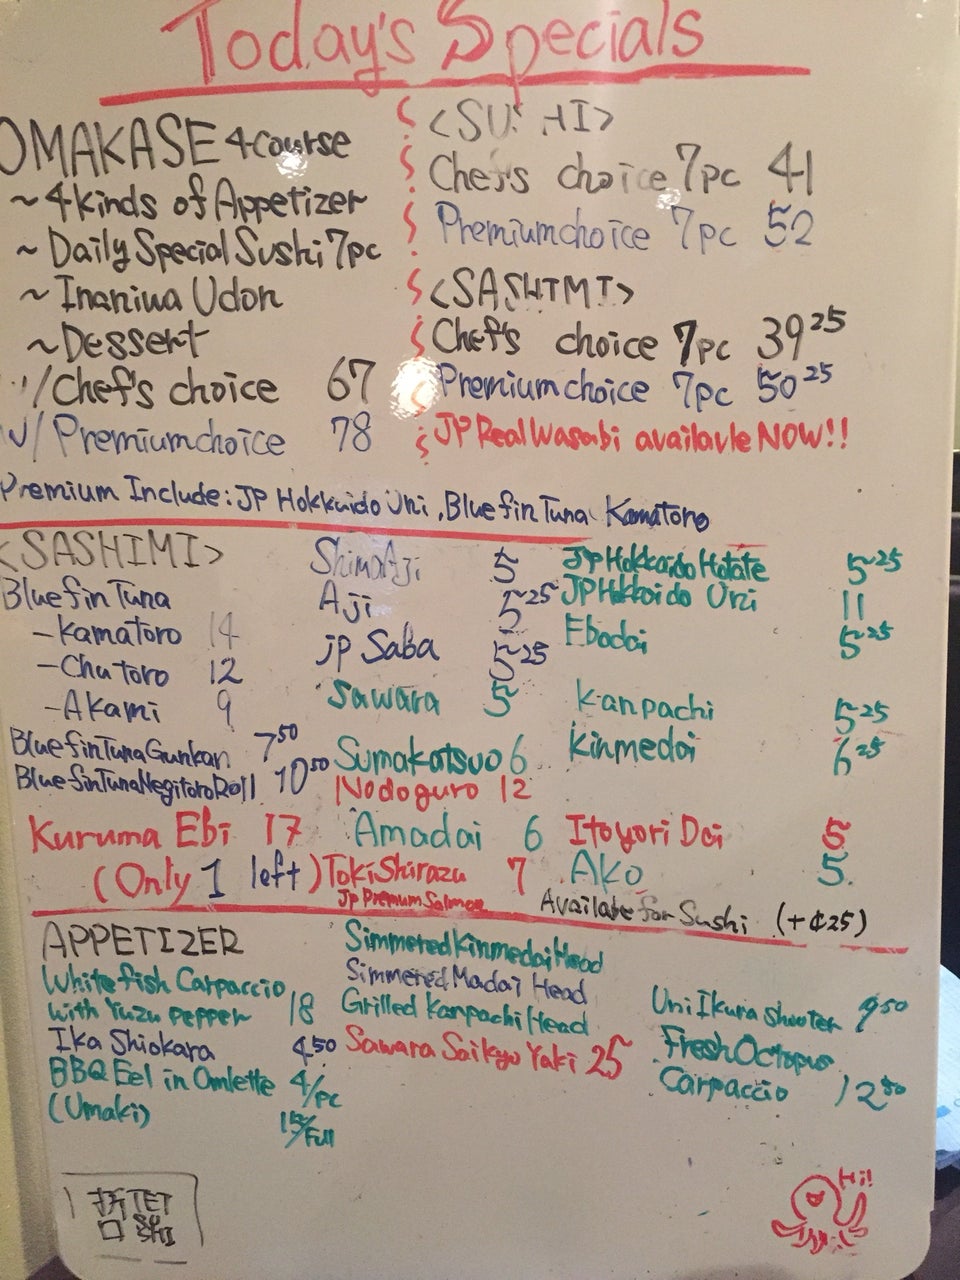 Today's Specials
OMAKASE 4-course
~4kinds of Appetizer
~Daily Special Sushi 7pc
~Inaniwa Udon
~Dessert
w/Chef's choice 67
w/Premiumchoice 78
<SUSHI>
Chef's choice 7pc 41
Premiumchoice 7pc 52
<SASHIMI>
Chef's choice 7pc 39 25
Premiumchoice 7pc 50 25
JP Real Wasabi availavle NOW!!
Premium Include: JP Hokkaido Uni, Bluefin Tuna Kamatoro
<SASHIMI>
Bluefin Tuna
-Kamatoro 14
-Chutoro 12
-Akami 9
Bluefin Tuna Gunkan 7 50
Bluefin Tuna Negitoro Roll 10 50
Kuruma Ebi 17
(Only 1 left)
Shima Aji 5
Aji 5 25
JP Saba 5 25
Sawara 5
Sumakatsuo 6
Nodoguro 12
Amadai 6
TokiShirazu 7
JP Premium Salmon
JP Hokkaido Hotate 5 25
JP Hokkaido Uni 11
Ebodai 5 25
Kanpachi 5 25
Kinmedai 6 25
Itoyori Dai 5
Ako 5
Available for Sushi (+¢25)
APPETIZER
Whitefish Carpaccio
with Yuzu pepper 18
Ika Shiokara 4 50
BBQ Eel in Omlette 4/pc
(Umaki) 15/Full
Simmered Kinmedai Head
Simmered Madai Head
Grilled Kanpachi Head
Sawara Saikyo Yaki 25
Uni Ikura shooter 9 50
Fresh Octopus
Carpaccio 12 50
TET
SU
SHI
Hi!